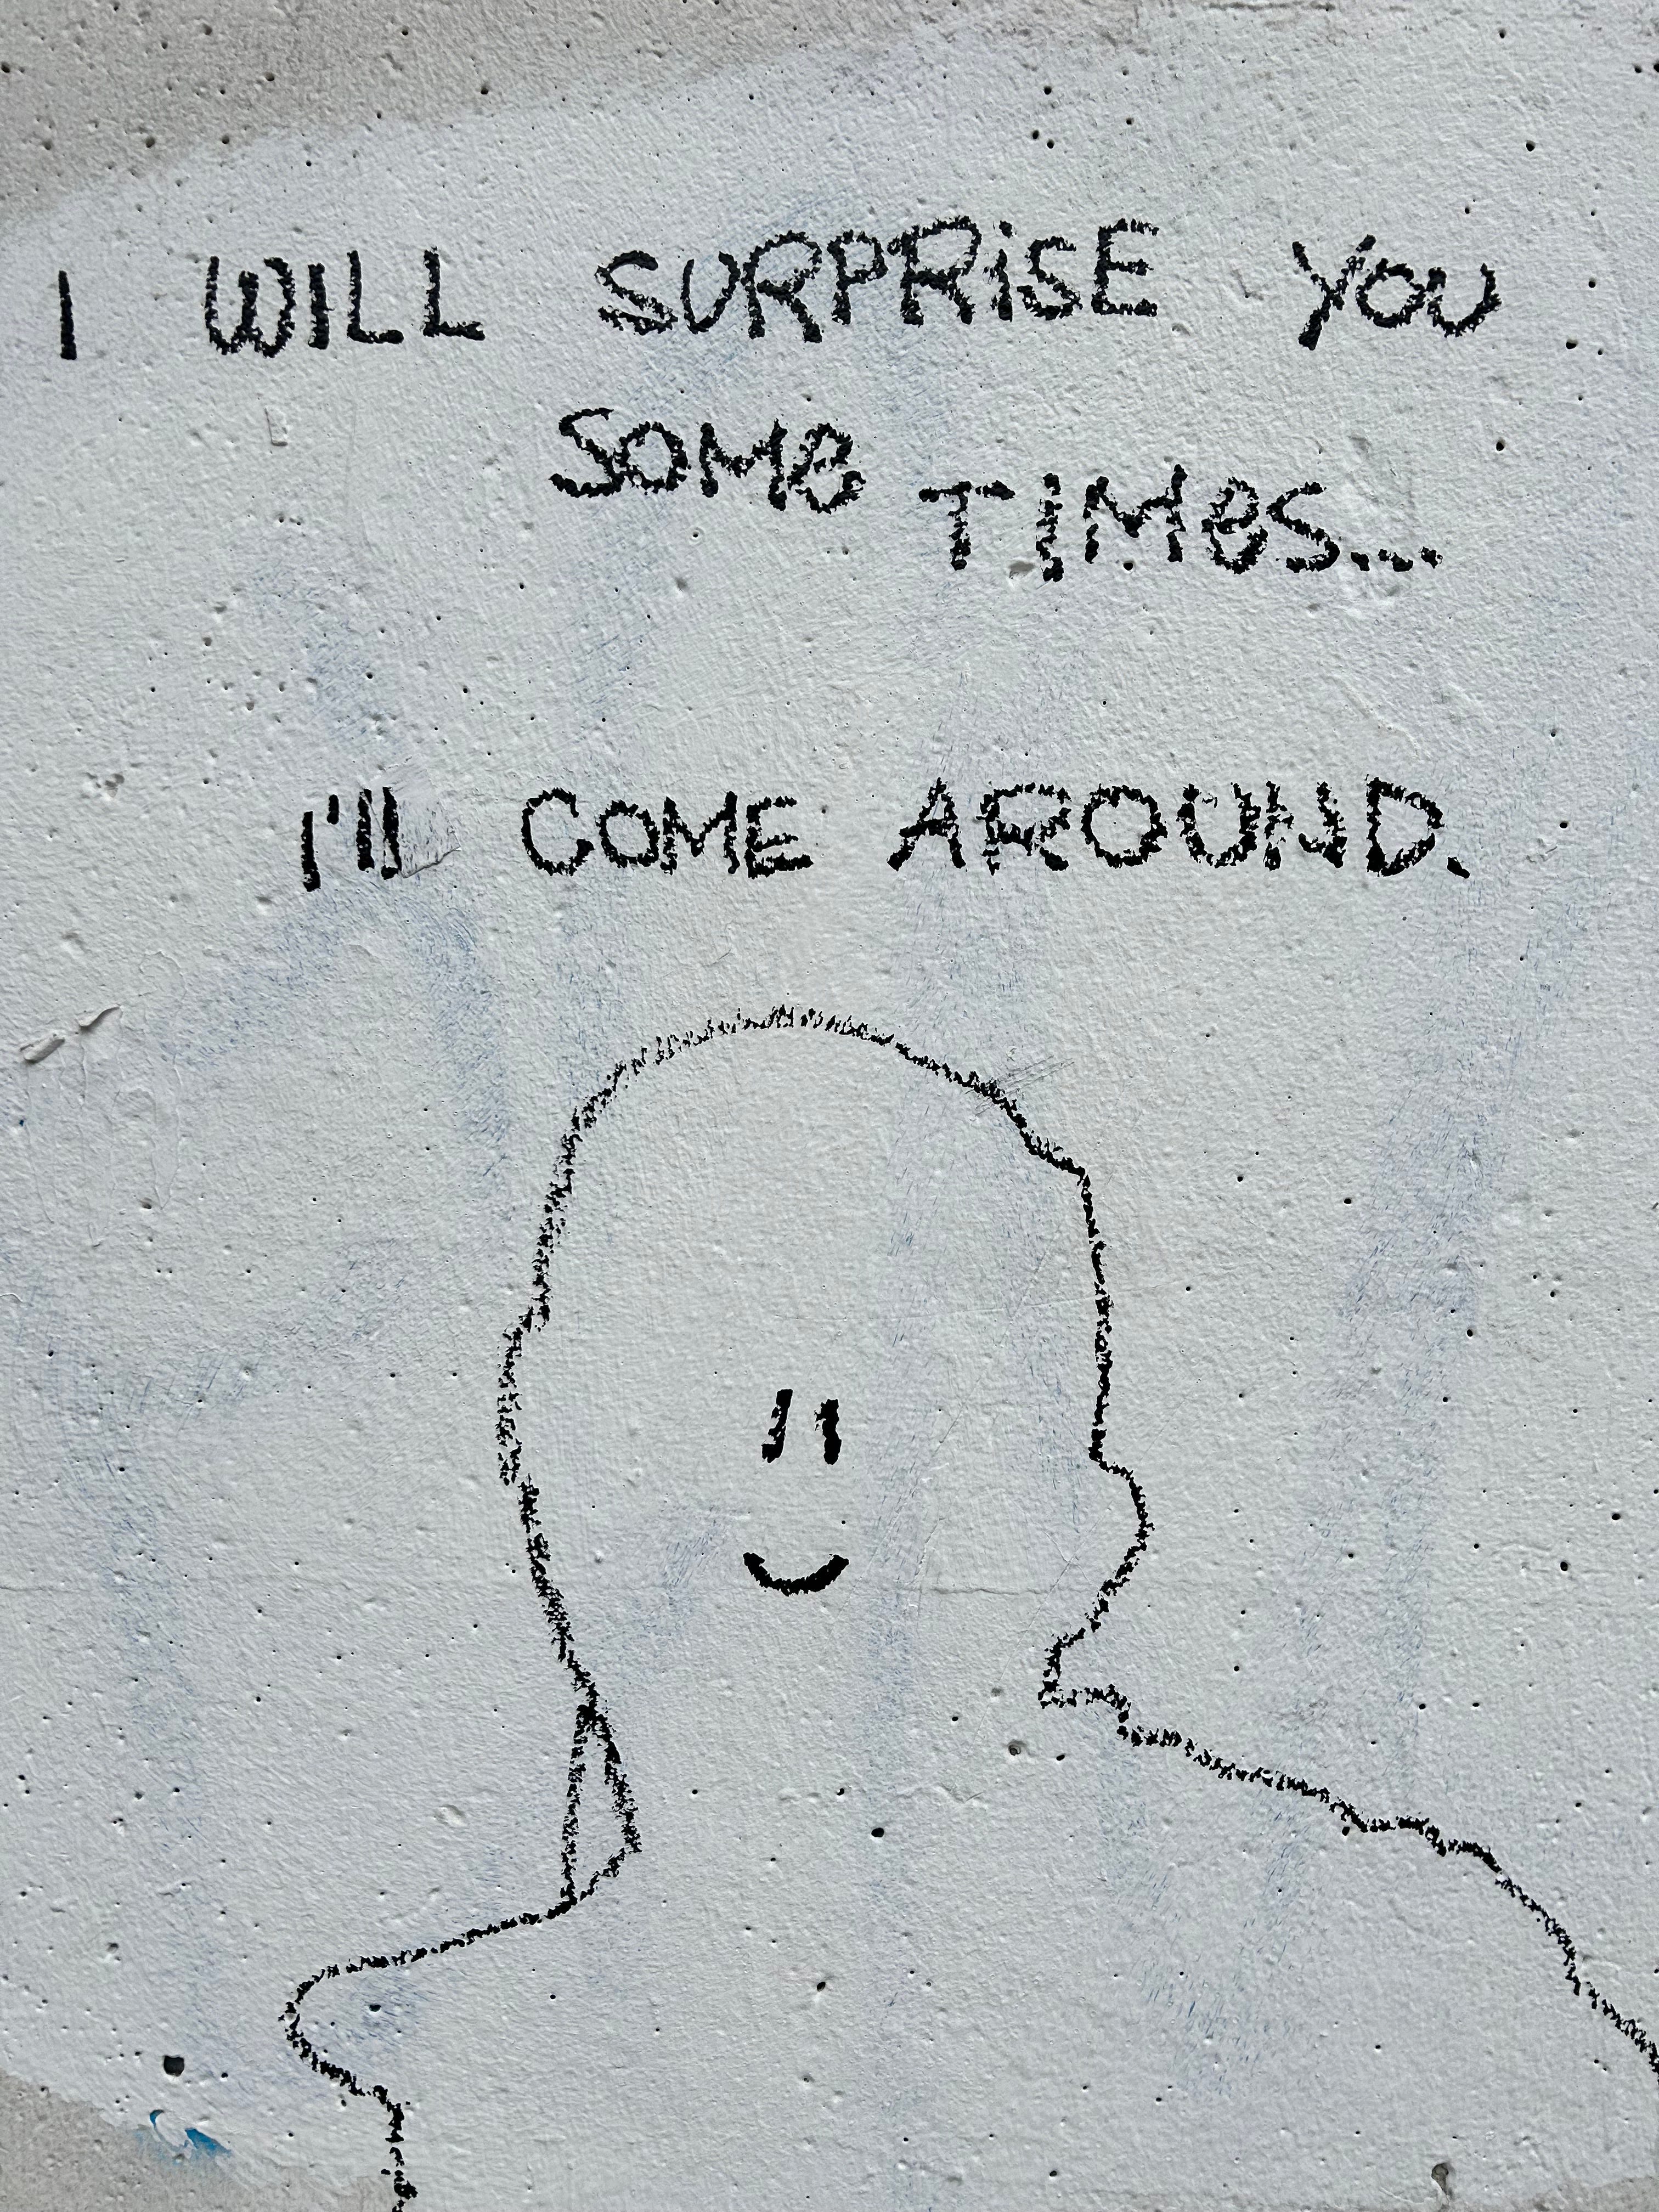 I WILL SURPRiSE YOU
SOMe
TIMeS...
I'll COME AROUND.